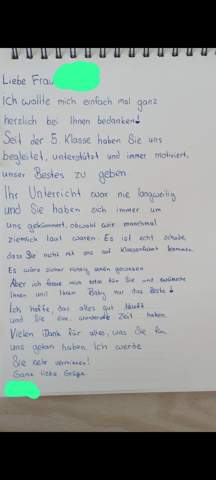 Liebe Frau
Ich wollte mich einfach mal ganz
herzlich bei Ihnen bedanken!
Seit der 5. Klasse haben Sie uns
begleitet, unterstützt und immer motiviert,
unser Bestes zu geben
Ihr Unterricht war nie langweilig
und Sie haben sich immer um
uns gekümmert, obwohl wir manchmal
ziemlich laut waren. Es ist echt schade,
dass Sie nicht mit uns auf Klassenfahrt kommen.
Es wäre sicher richtig schön gewesen
Aber ich freue mich total für Sie und wünsche
Ihnen und Ihrem Baby nur das Beste!
Ich hoffe, das alles gut läuft
und Sie eine wundervolle Zeit haben.
Vielen Dank für alles, was Sie für
uns getan haben. Ich werde
Sie sehr vermissen!
Ganz liebe Grüße